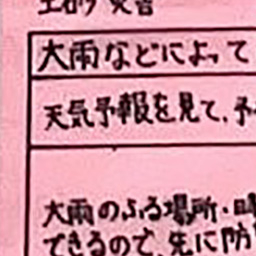 土砂災害
大雨などによって
天気予報を見て、予
大雨のふる場所・時
できるので、先に防